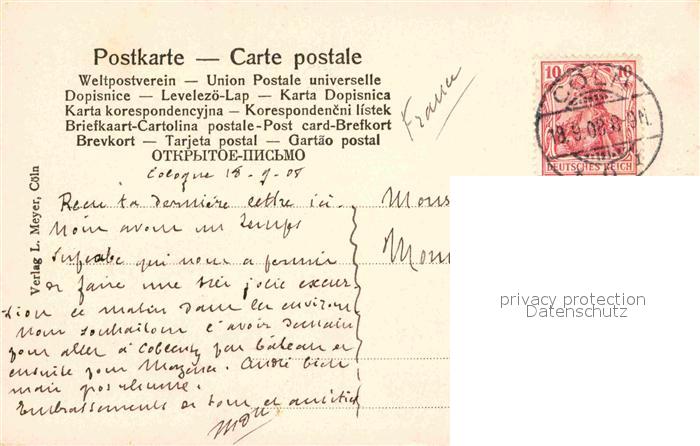 Postkarte — Carte postale
Weltpostverein — Union Postale universelle
Dopisnice — Levelező-Lap — Karta Dopisnica
Karta korespondencyjna — Korespondenční lístek
Briefkaart-Cartolina postale-Post card-Brefkort
Brevkort — Tarjeta postal — Gartão postal
ОТКРЫТОЕ-ПИСЬМО
France
10 10
CÖLN
18.9.08.8-9N.
DEUTSCHES REICH
Verlag L. Meyer, Cöln
Cologne 18-9-08
Reçu ta dernière lettre ici.
Nous avons un temps
superbe qui nous a permis
de faire une très jolie excur-
sion ce matin dans les environs
Nous souhaitons l'avoir demain
pour aller à Coblence par bâteau et
ensuite pour Mayence. André bien
mais pas rhume.
Embrassements de tous et amitiés
Mons
Mons
privacy protection
Datenschutz